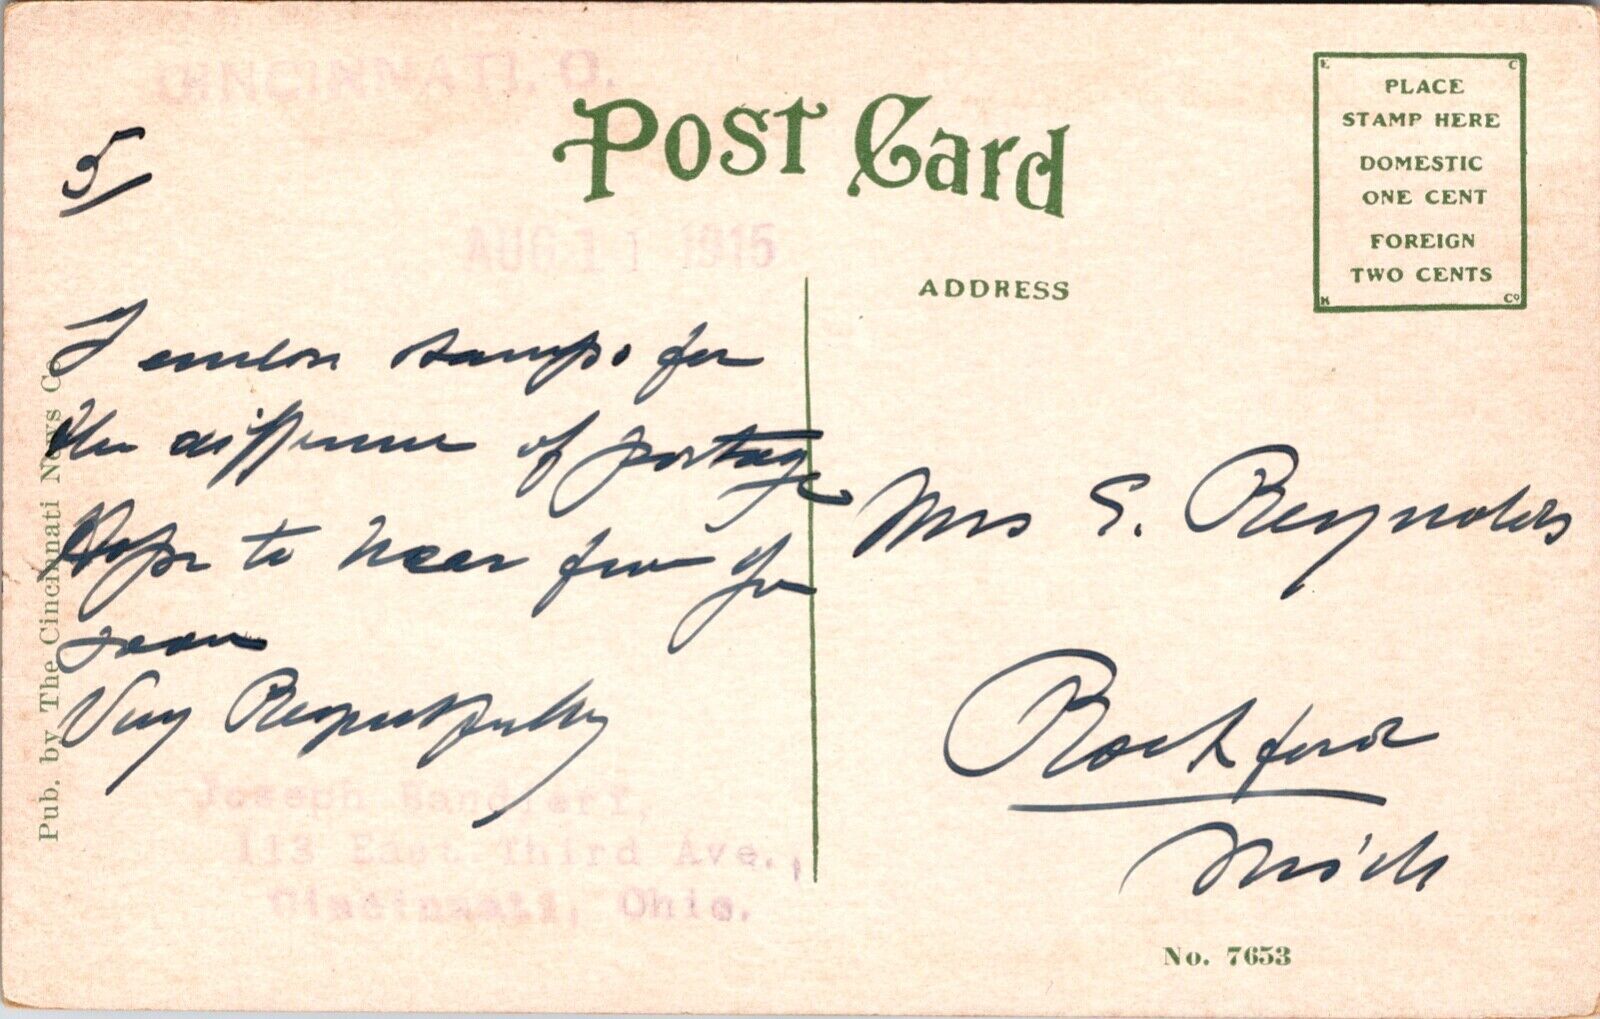 CINCINNATI, O.
5
Post Card
PLACE
STAMP HERE
DOMESTIC
ONE CENT
FOREIGN
TWO CENTS
E C K Co
AUG 11 1915
ADDRESS
I enclose stamps for
the difference of postage
Hope to hear from you
soon
Very Respectfully
Joseph
113 East Third Ave.,
Cincinnati, Ohio.
Pub. by The Cincinnati News C
Mrs E. Reynolds
Rockford
Mich
No. 7653